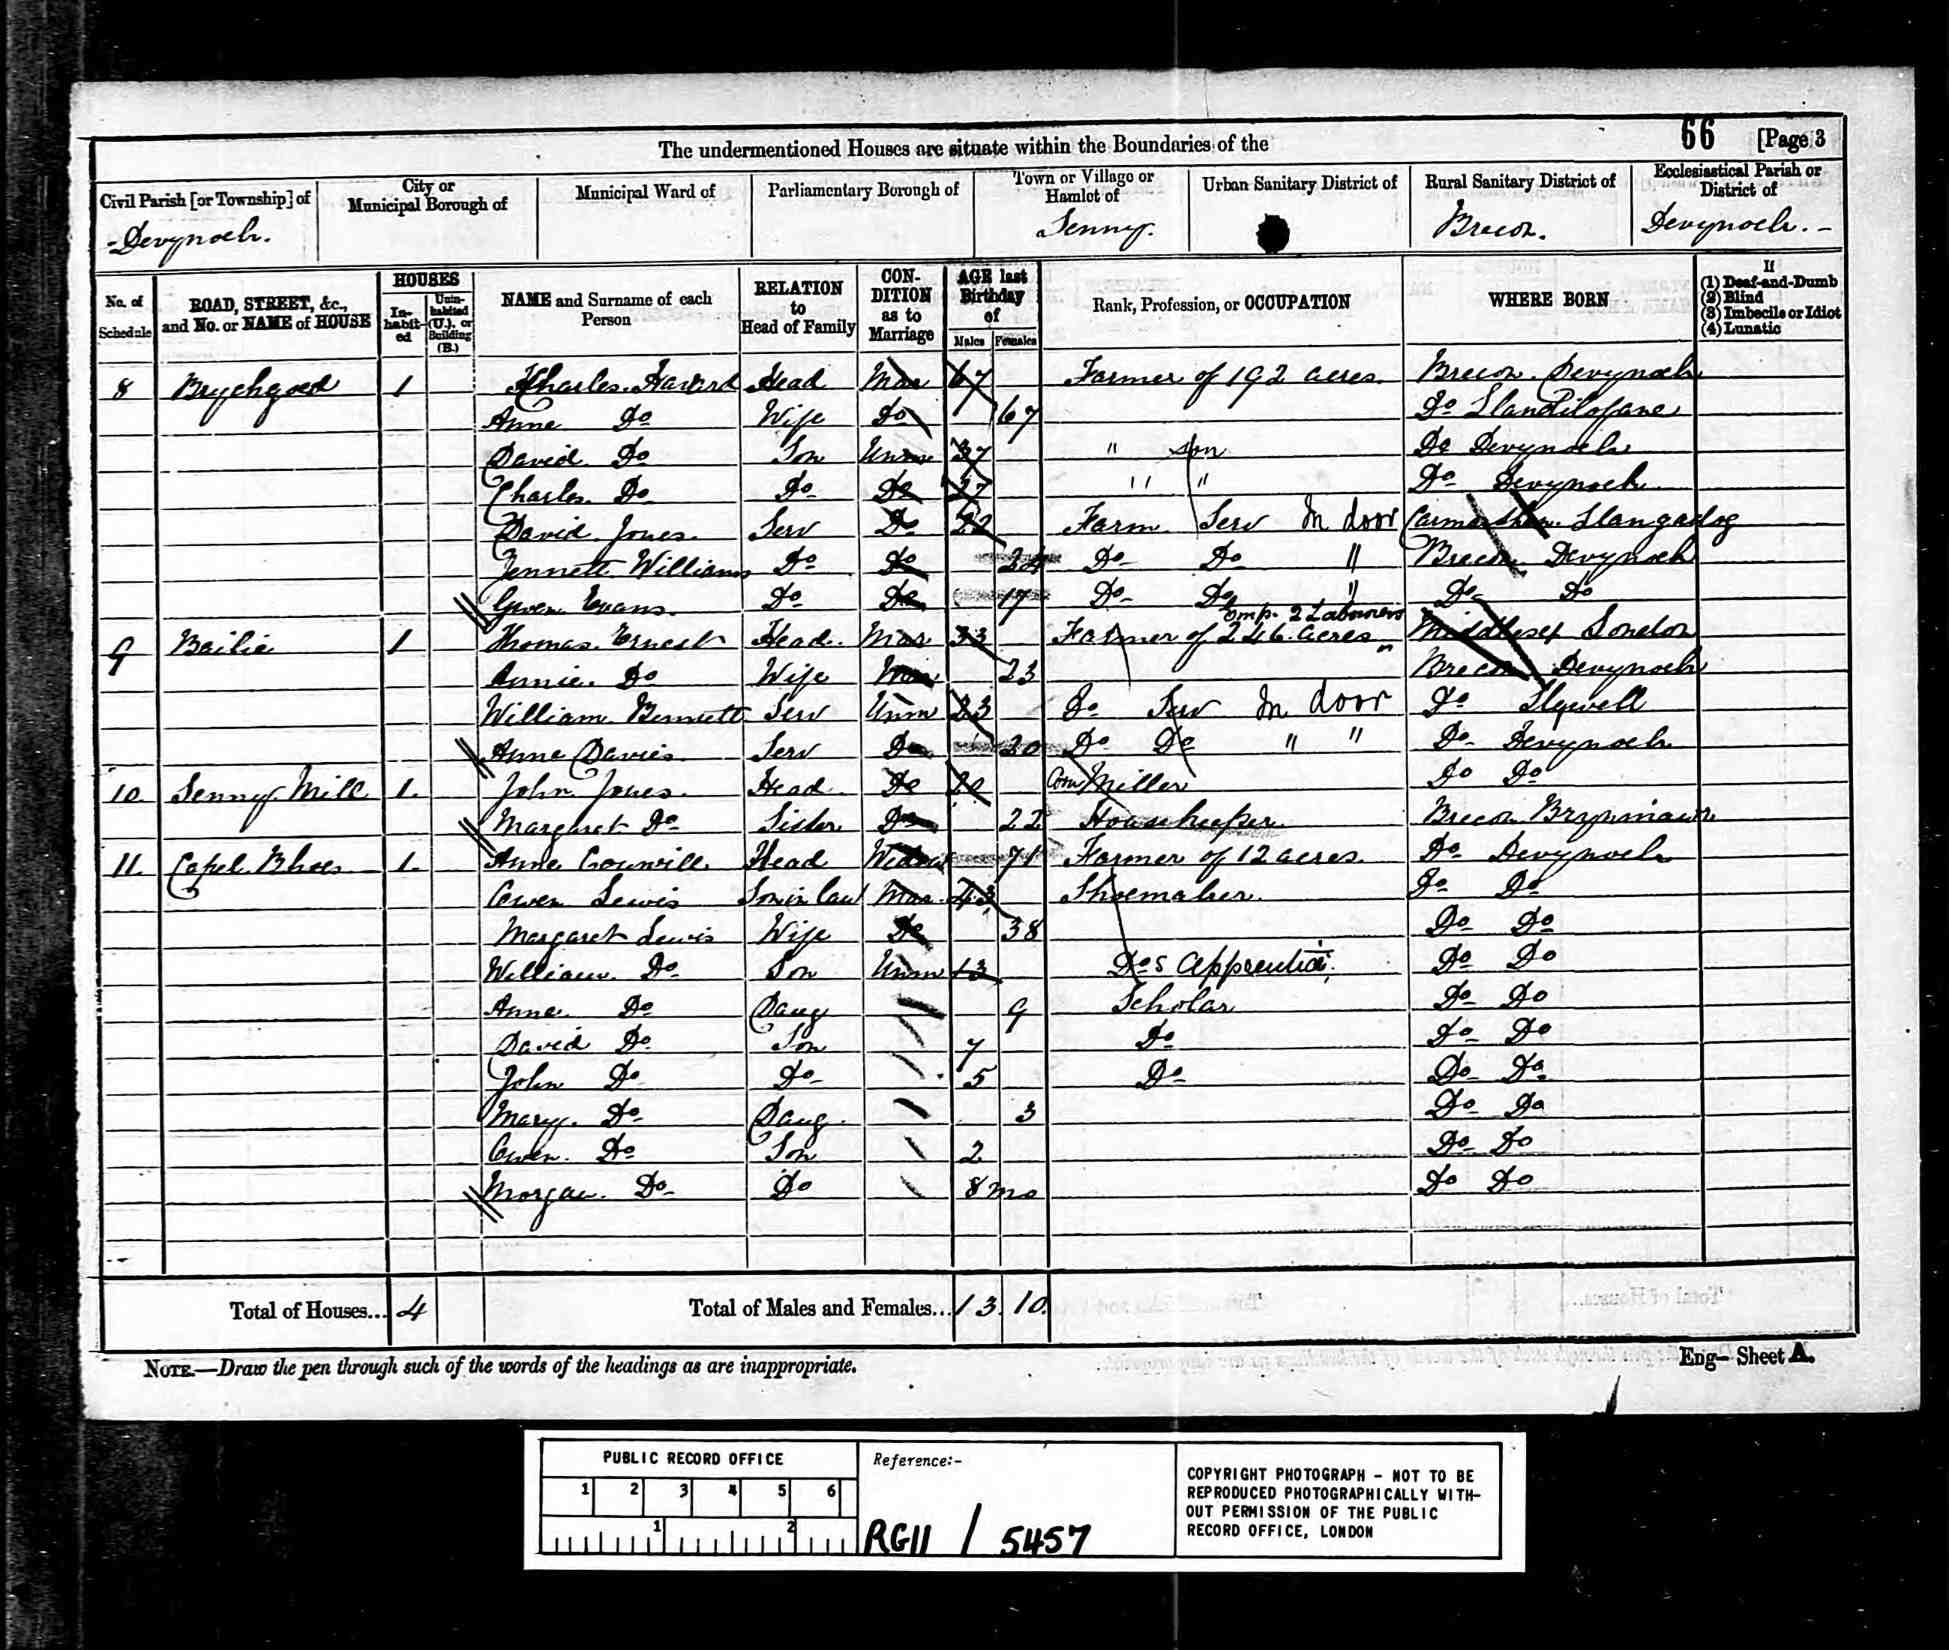 66 [Page 3
The undermentioned Houses are situate within the Boundaries of the
Civil Parish [or Township] of City or Municipal Borough of Municipal Ward of Parliamentary Borough of Town or Village or Hamlet of Urban Sanitary District of Rural Sanitary District of Ecclesiastical Parish or District of
Devynock. Senny. Brecon. Devynock.
No. of Schedule ROAD, STREET, &c., and No. or NAME of HOUSE HOUSES Inhabited Uninhabited (U.), or Building (B.) NAME and Surname of each Person RELATION to Head of Family CONDITION as to Marriage AGE last Birthday of Males Females Rank, Profession, or OCCUPATION WHERE BORN If (1) Deaf-and-Dumb (2) Blind (3) Imbecile or Idiot (4) Lunatic
8 Brychgoed 1 Charles Havard Head Mar 67 Farmer of 192 acres. Brecon. Devynock
Anne Do Wife Do 67 Do Llandilofane
David Do Son Unm 37 " son Do Devynock
Charles Do Do Do 27 " " Do Devynock
David Jones. Serv Do 22 Farm Serv In door Carmarthen. Llangadog
Jennett Williams Do Do 24 Do Do " Brecon Devynock
Gwen Evans. Do Do 17 Do Do " Do Do
9 Bailie 1 Thomas Ernest Head Mar 33 Farmer of 246 acres emp. 2 Labourers Middlesex London
Annie. Do Wife Mar 23 Brecon Devynock
William Bennett Serv Unm 23 Do Serv In door Do Llywell
Anne Davies. Serv Do 20 Do Do " " Do Devynock
10. Senny Mill 1. John Jones. Head Do 20 Corn Miller Do Do
Margaret Do Sister Do 22 Housekeeper Brecon Brynmawr
11. Capel Rhos 1. Anne Head Widow 71 Farmer of 12 acres. Do Devynock
Owen Lewis Son in law Mar 43 Shoemaker. Do Do
Margaret Lewis Wife Do 38 Do Do
William. Do Son Unm 13 Dos Apprentice Do Do
Anne Do Daug 9 Scholar Do Do
David Do Son 7 Do Do Do
John Do Do 5 Do Do Do
Mary. Do Daug. 3 Do Do
Owen. Do Son 2 Do Do
Morgan. Do Do 8 mo Do Do
Total of Houses... 4 Total of Males and Females... 13. 10.
NOTE.—Draw the pen through such of the words of the headings as are inappropriate. Eng- Sheet A.
PUBLIC RECORD OFFICE
1 2 3 4 5 6
1 2
Reference:-
RG11 / 5457
COPYRIGHT PHOTOGRAPH - NOT TO BE
REPRODUCED PHOTOGRAPHICALLY WITH-
OUT PERMISSION OF THE PUBLIC
RECORD OFFICE, LONDON